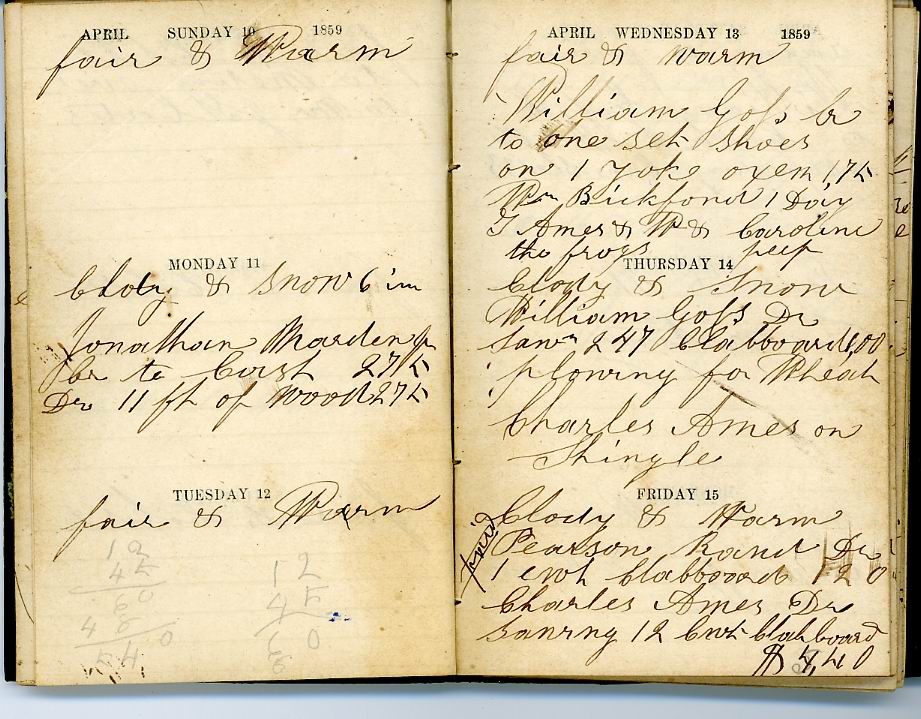 APRIL SUNDAY 10 1859
fair & Warm
MONDAY 11
Clody & Snow 6 in
Jonathan Marden Jr
Cr to Cash 275
Dr 11 ft of Wood 275
TUESDAY 12
fair & Warm
12
45
60
48
540
12
45
60
APRIL WEDNESDAY 13 1859
fair & warm
William Goss Cr
to one set Shoes
on 1 Yoke oxen 1,75
Wm Bickford 1 Day
G Ames & W & Caroline
the frogs peep
THURSDAY 14
Clody & Snow
William Goss Dr
247 Clabboard
plowing for Wheat
Charles Ames on
Shingle
FRIDAY 15
Clody & Warm
paid
Pearson Rand Dr
1 cwt Clabboard 120
Charles Ames Dr
Sawing 12 Cwt Clabboard
$5,40